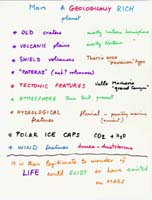 Mars A GEOLOGICALLY RICH
planet
* OLD craters mostly Southern hemisphere
* VOLCANIC plains mostly Northern
* SHIELD VOLCANOES Tharsis area "Hawaiian" type
* "PATERAS" (ash? volcanoes)
* TECTONIC FEATURES Valle Marineris "grand Canyon"
* ATMOSPHERE thin but present
* HYDROLOGICAL fluvial - possibly marine
features (ancient)
* POLAR ICE CAPS CO2 + H2O
* WIND features dunes - duststorms
It is then legitimate to wonder if
LIFE could EXIST or have existed
on MARS